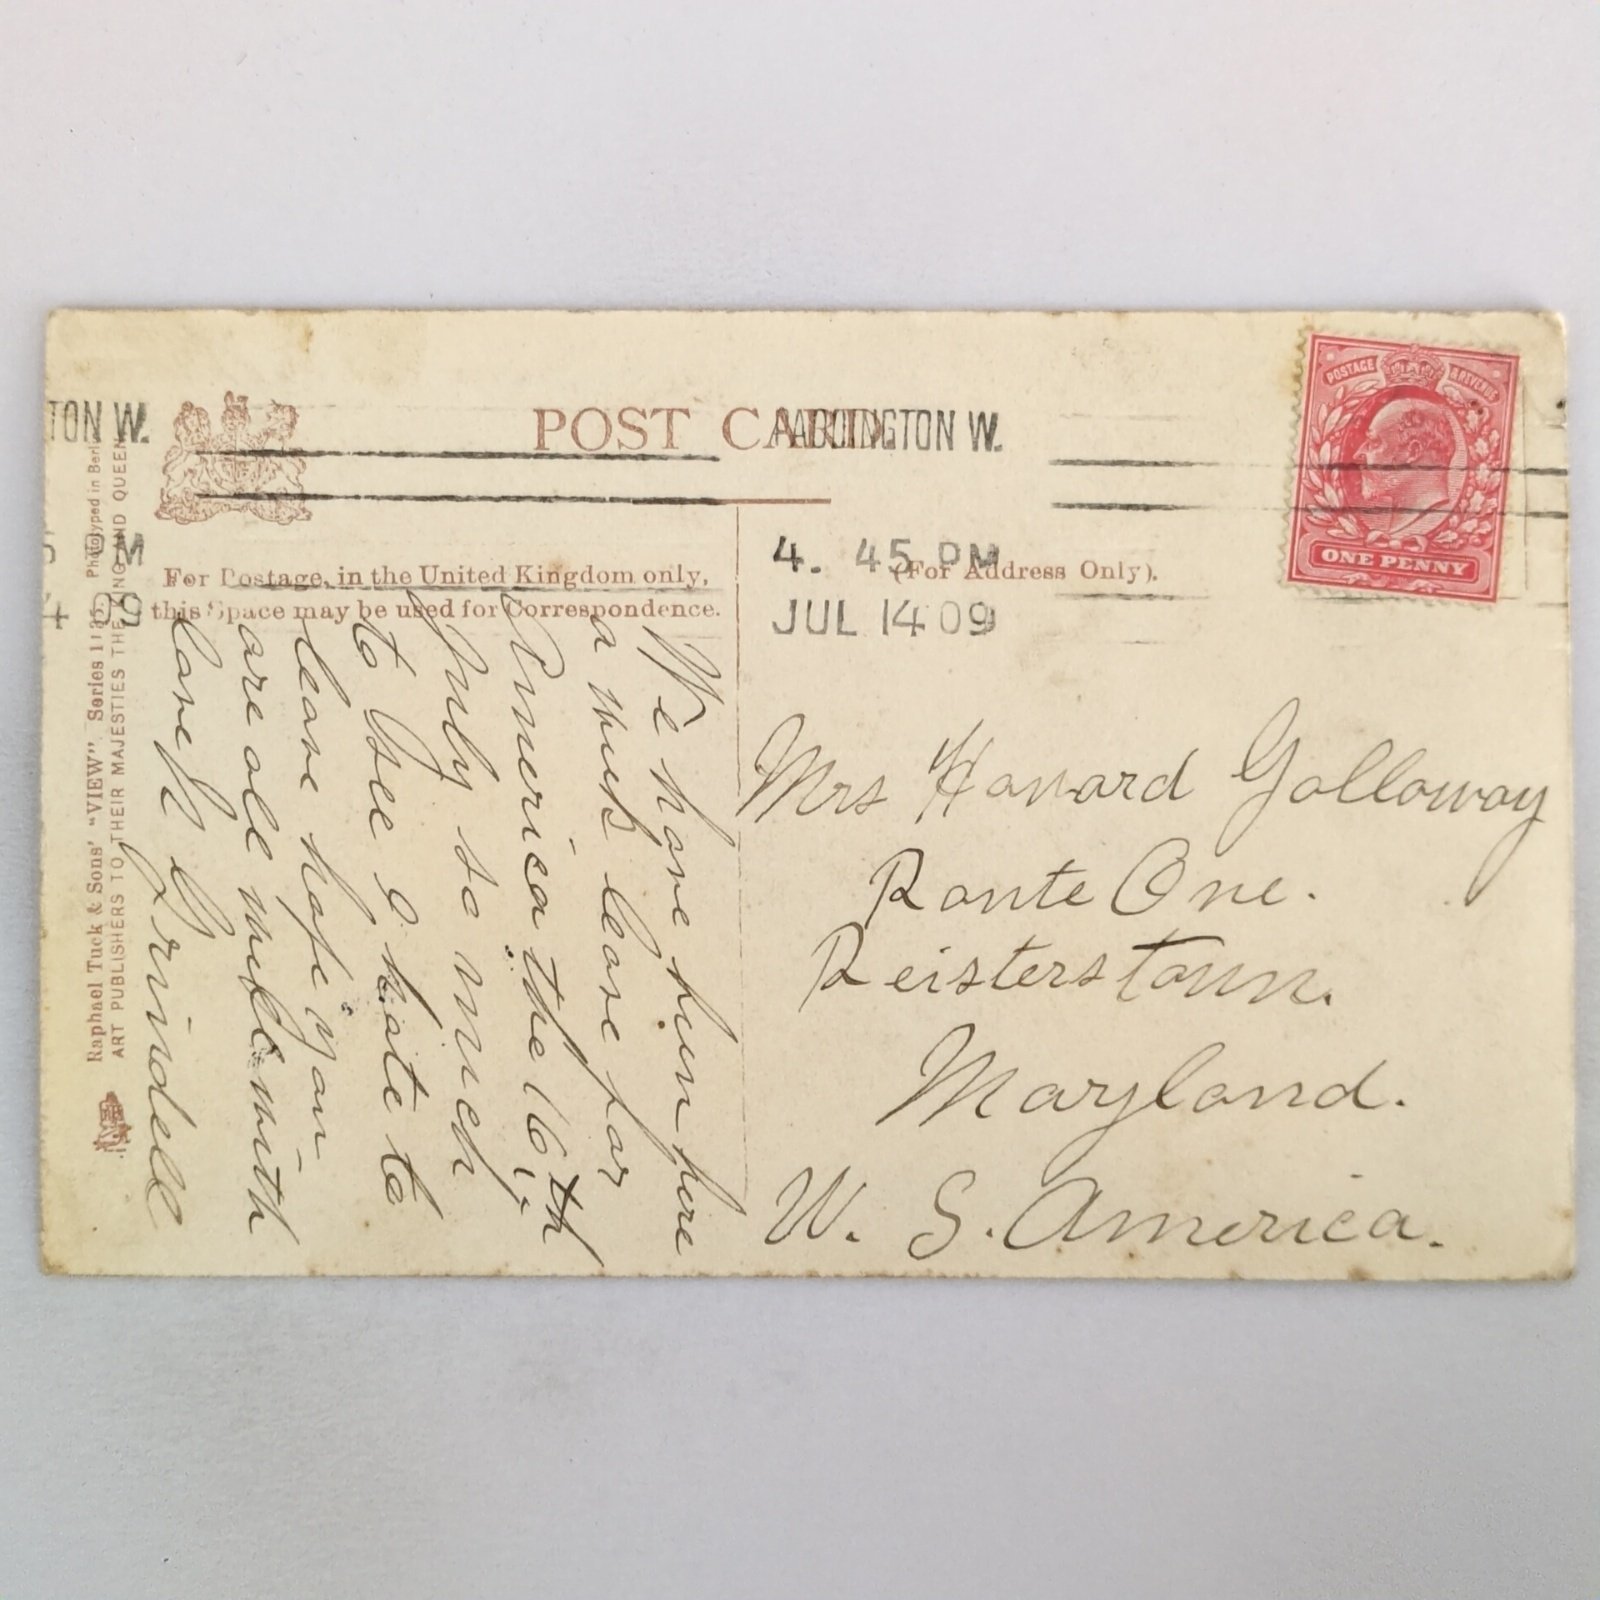 TON W.
POST CARD
PADDINGTON W.
POSTAGE & REVENUE
ONE PENNY
PM
4 09
4. 45 PM
JUL 14 09
For Postage, in the United Kingdom only,
this Space may be used for Correspondence.
(For Address Only).
Raphael Tuck & Sons' "VIEW". Series 1135 Phototyped in Berlin
ART PUBLISHERS TO THEIR MAJESTIES THE KING AND QUEEN
We have been here
a week leave for
America the 16th
July so much
to see I hate to
leave hope you
are all well with
love Grindell
Mrs Howard Galloway
Route One.
Reisterstown.
Maryland.
U. S. America.